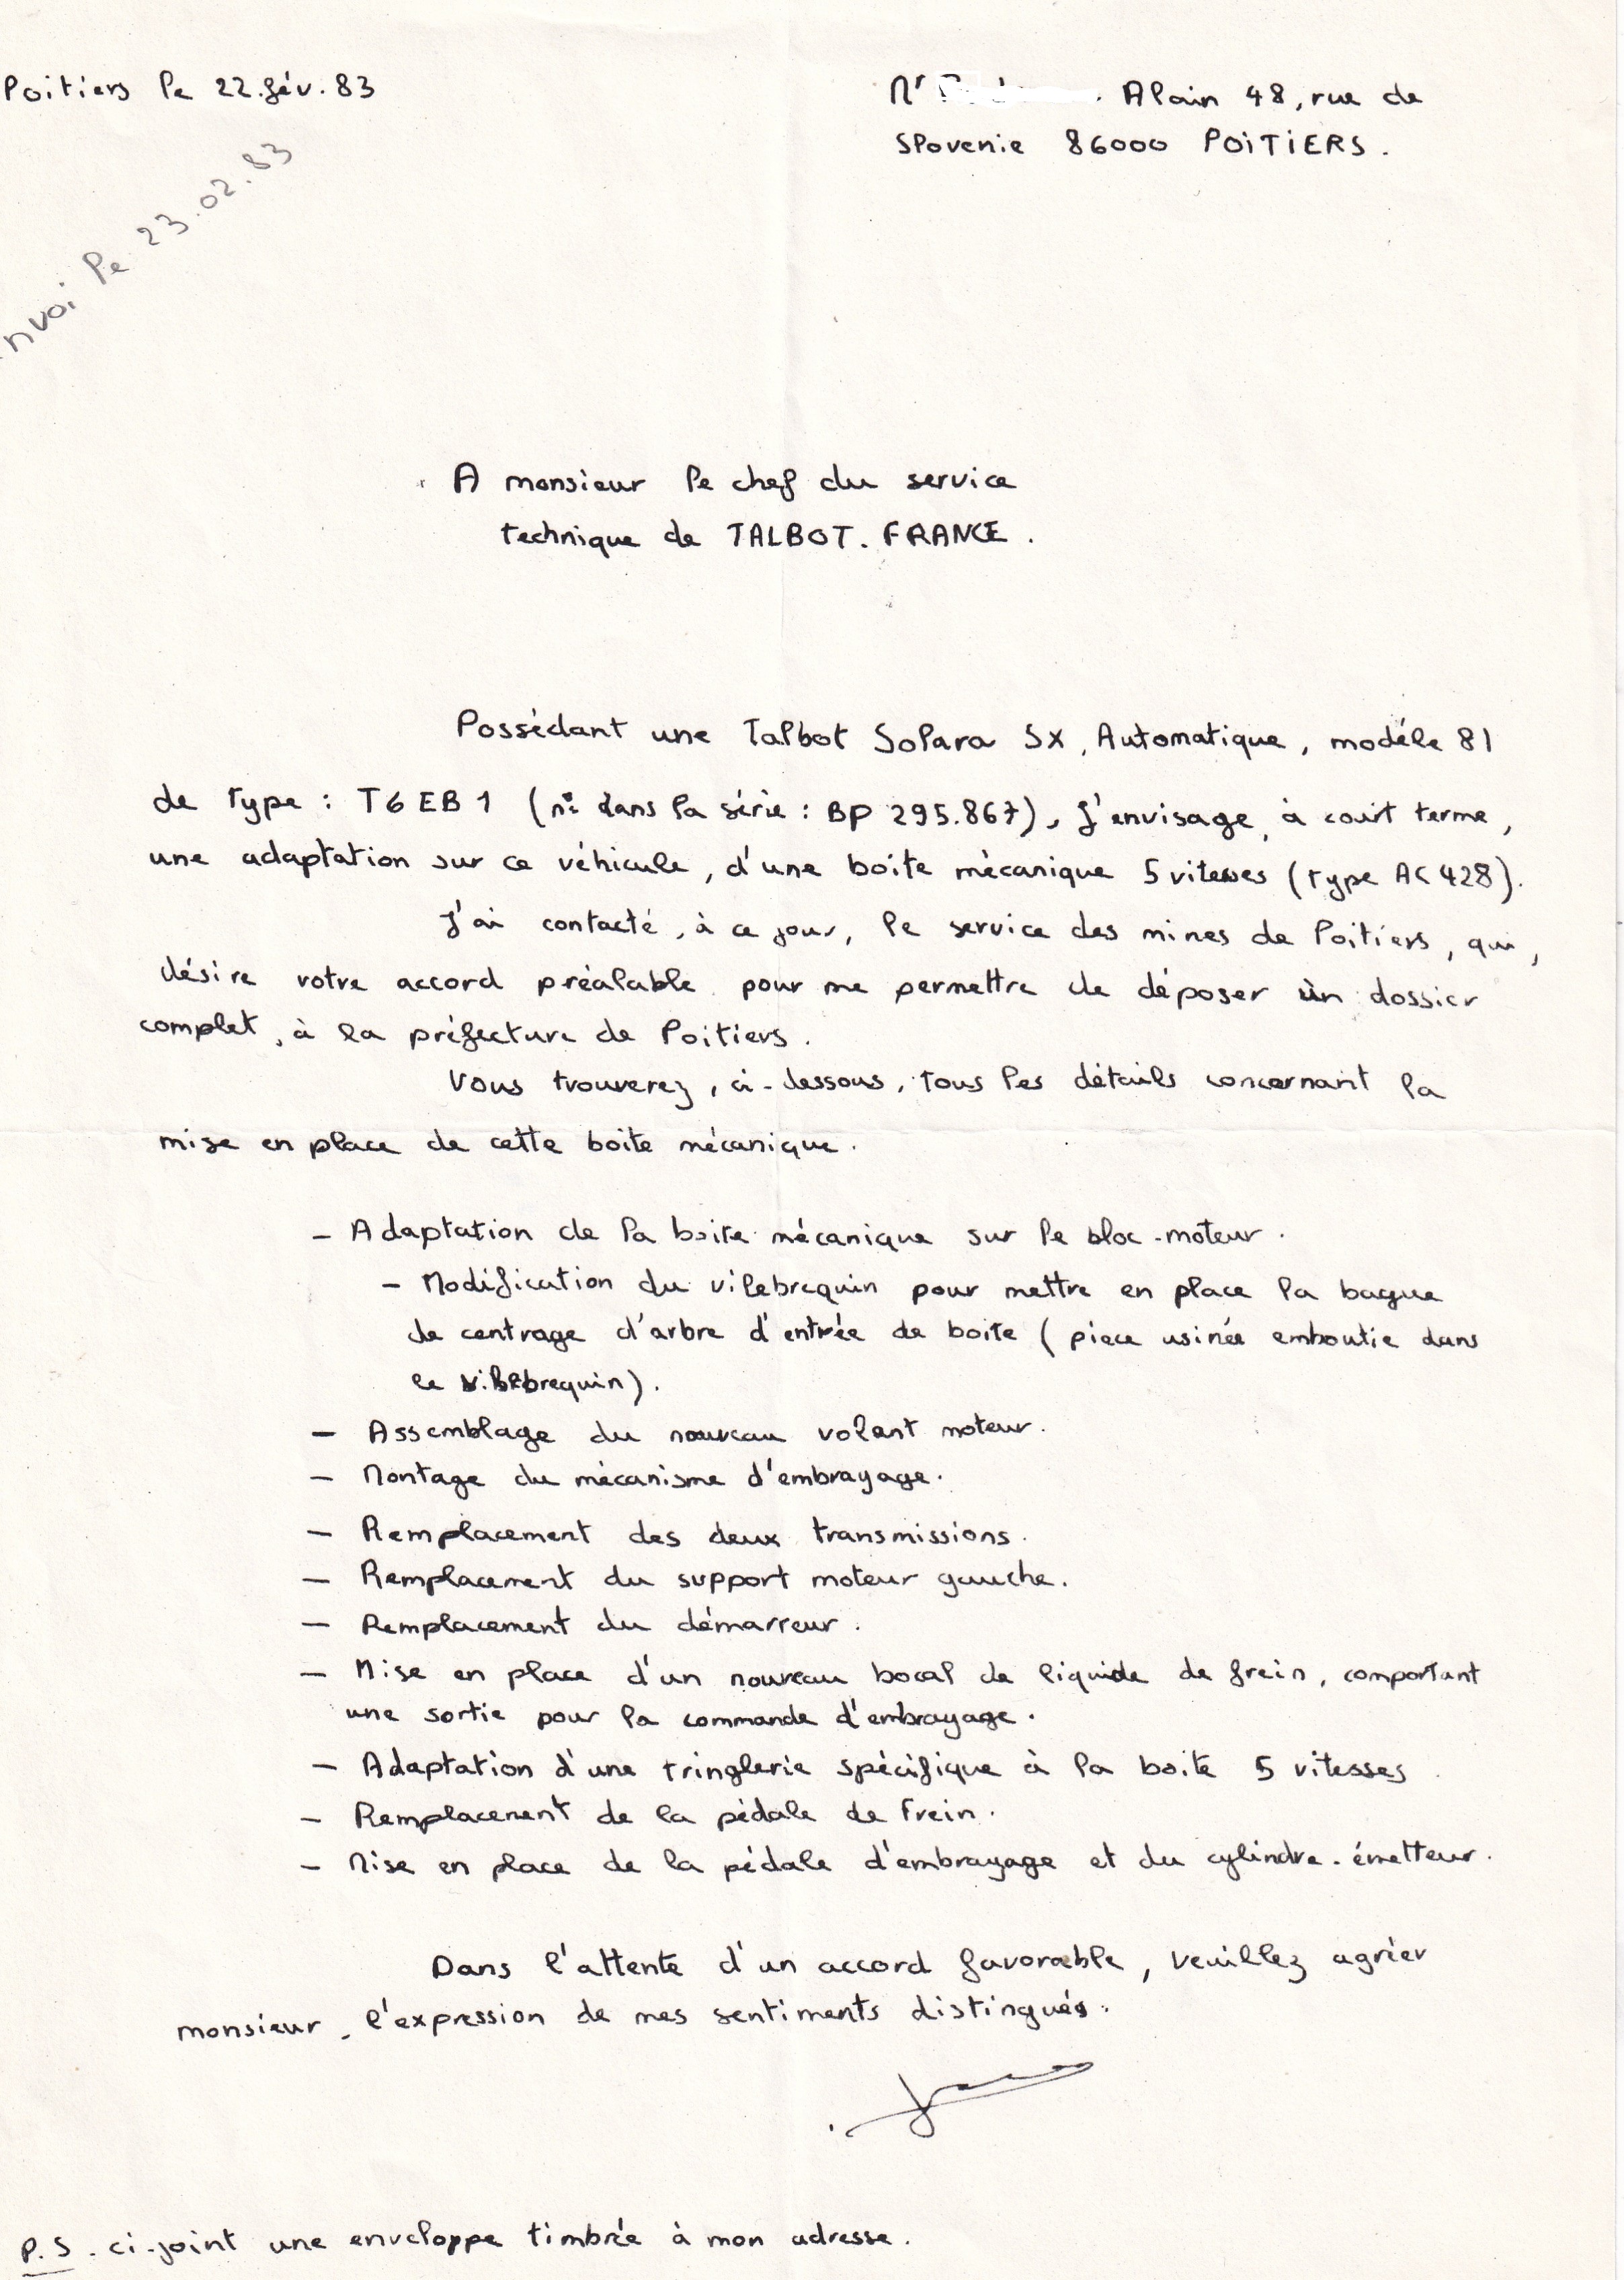 Poitiers le 22.fév.83
Mr Alain 48, rue de
Slovenie 86000 POITIERS.
nvoi le 23.02.83
A monsieur le chef du service
technique de TALBOT. FRANCE.
Possédant une Talbot Solara SX, Automatique, modéle 81
de type : T6 EB 1 (n° dans la série : BP 295.867), J'envisage, à court terme,
une adaptation sur ce véhicule, d'une boite mécanique 5 vitesses (type AC 428).
J'ai contacté, à ce jour, le service des mines de Poitiers, qui,
désire votre accord préalable pour me permettre de déposer un dossier
complet, à la préfecture de Poitiers.
Vous trouverez, ci-dessous, tous les détails concernant la
mise en place de cette boite mécanique.
- Adaptation de la boite mécanique sur le bloc-moteur.
- Modification du vilebrequin pour mettre en place la bague
de centrage d'arbre d'entrée de boite ( piece usinée emboutie dans
le vilebrequin).
- Assemblage du nouveau volant moteur.
- Montage du mécanisme d'embrayage.
- Remplacement des deux transmissions.
- Remplacement du support moteur gauche.
- Remplacement du démarreur.
- Mise en place d'un nouveau bocal de liquide de frein, comportant
une sortie pour la commande d'embrayage.
- Adaptation d'une tringlerie spécifique à la boite 5 vitesses.
- Remplacement de la pédale de frein.
- Mise en place de la pédale d'embrayage et du cylindre-émetteur.
Dans l'attente d'un accord favorable, veuillez agréer
monsieur, l'expression de mes sentiments distingués.
P.S. ci-joint une enveloppe timbrée à mon adresse.